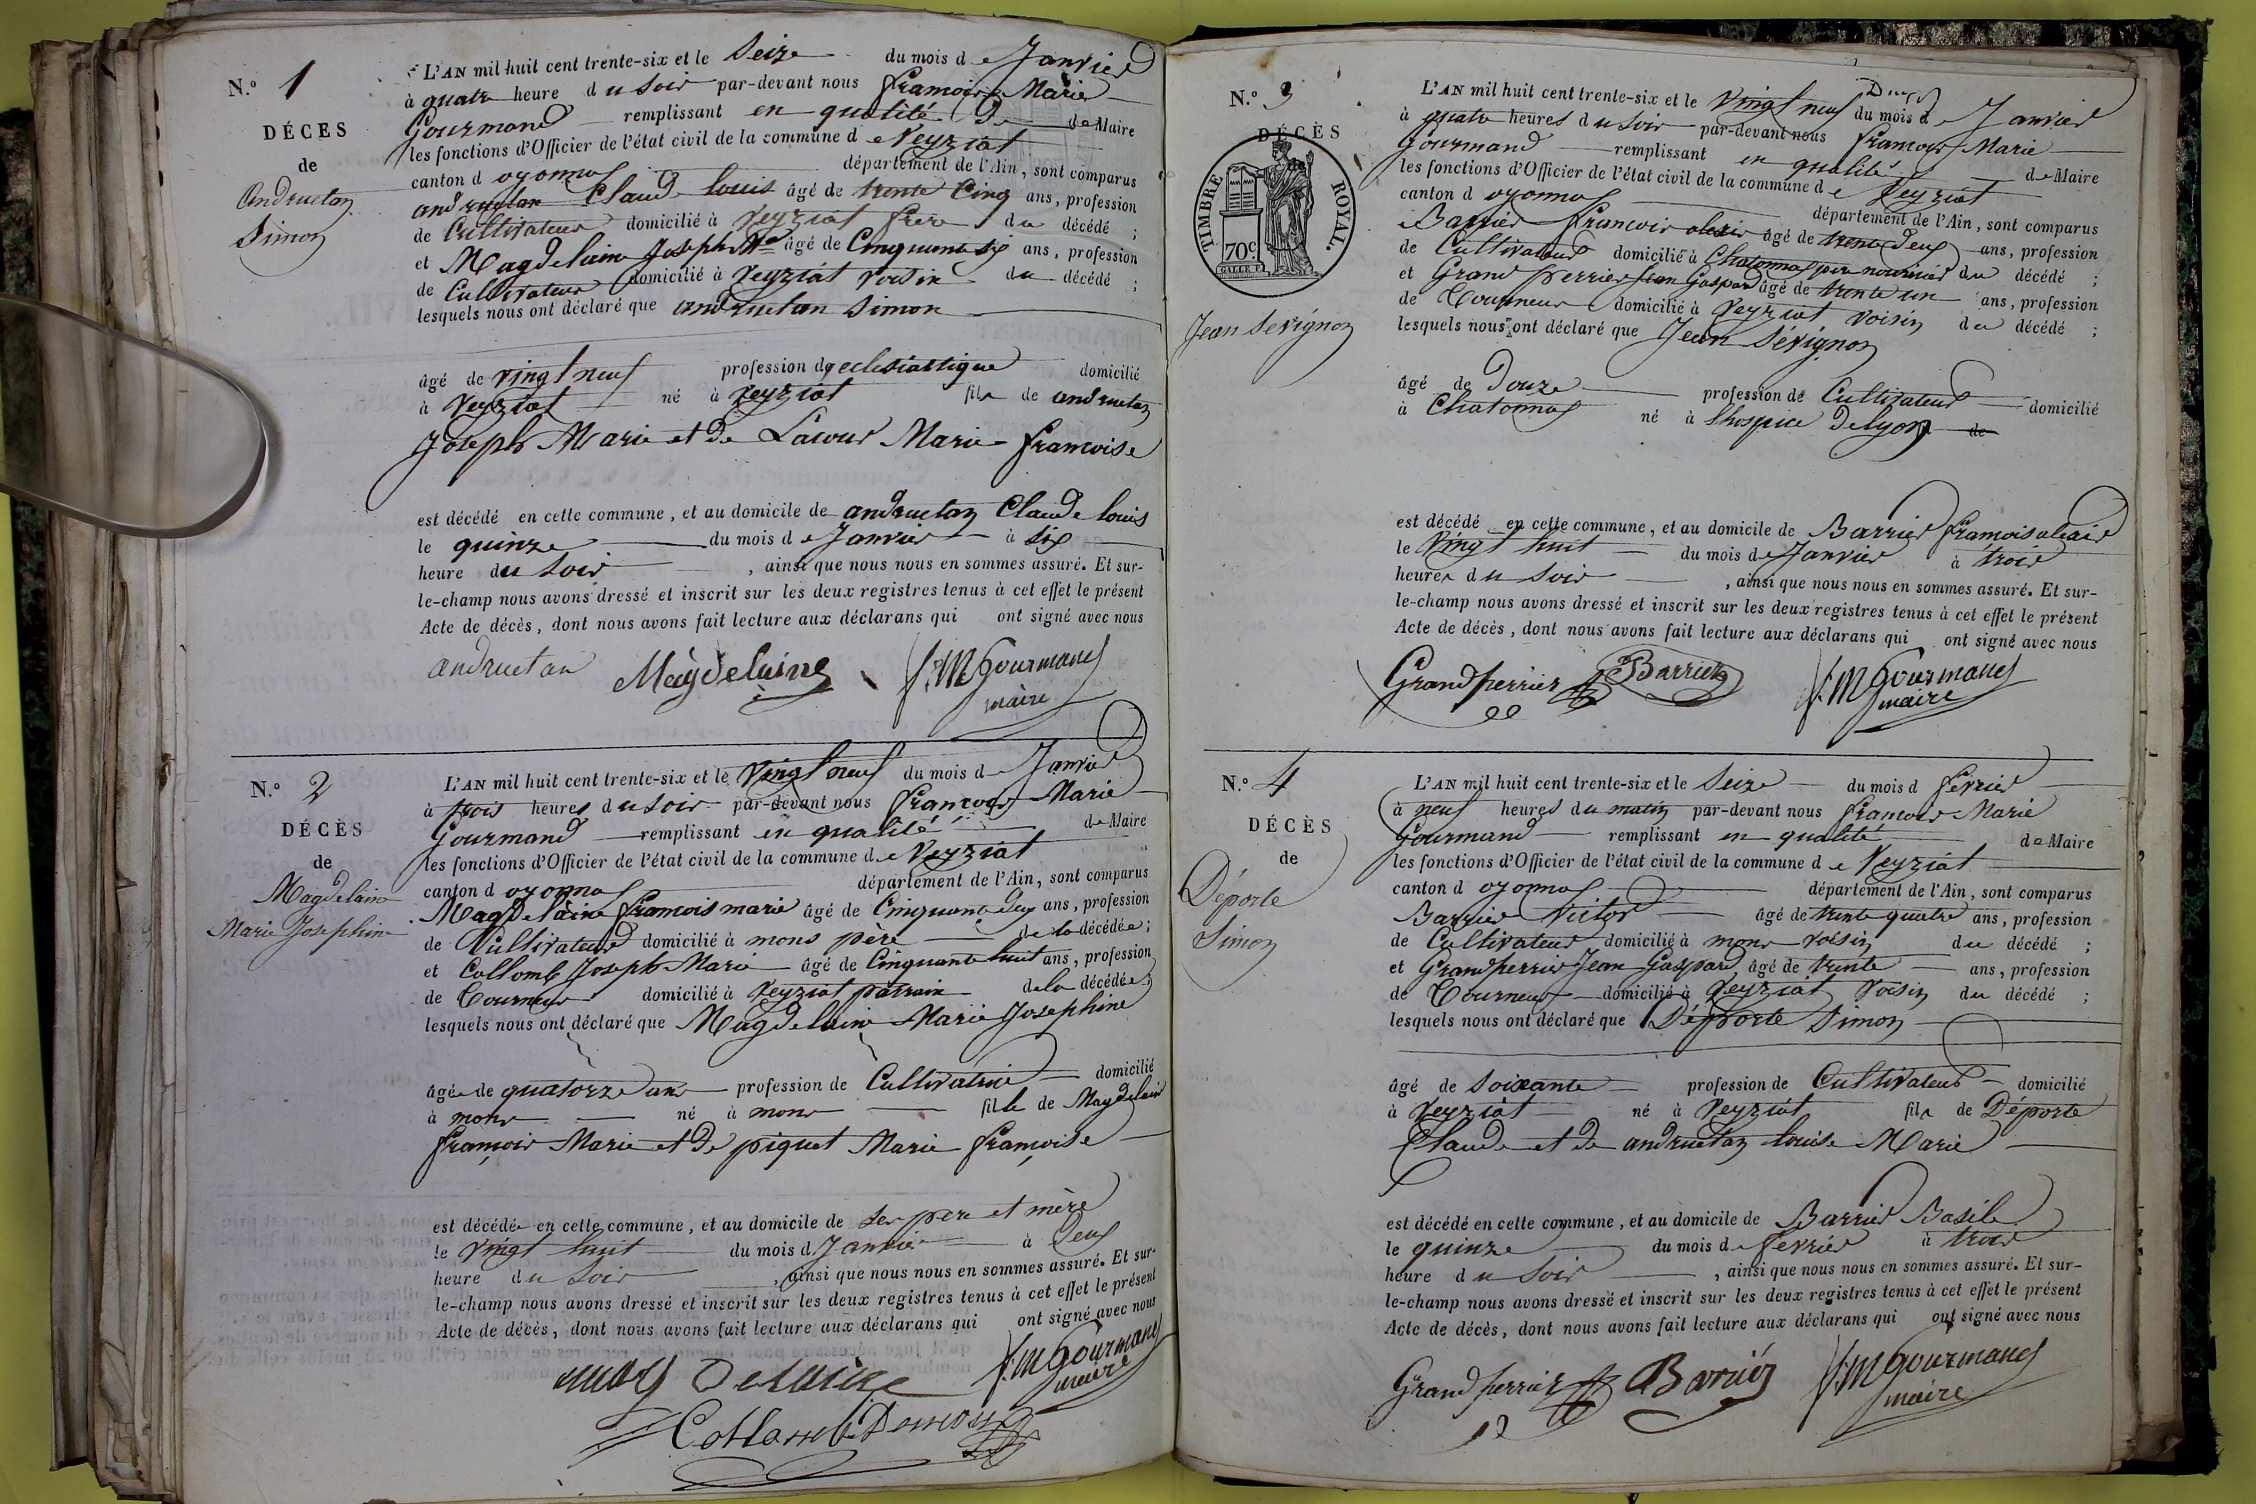 N.º 1
DÉCES
de
Andruetan
Simon
L'AN mil huit cent trente-six et le Seize du mois de Janvier
à quatre heure du Soir par-devant nous françois Marie
Gourmand remplissant en qualité De de Maire
les fonctions d'Officier de l'état civil de la commune de Veyziat
canton d oyonnas département de l'Ain, sont comparus
andruetan Claude louis âgé de trente Cinq ans, profession
de Cultivateur domicilié à Veyziat frère du décédé ;
et Magdelaine Joseph Mie âgé de Cinquante six ans, profession
de Cultivateur domicilié à Veyziat voisin du décédé ;
lesquels nous ont déclaré que andruetan Simon
âgé de vingt neuf profession d'eclesiastique domicilié
à Veyziat né à Veyziat fils de andruetan
Joseph Marie et de Lacour Marie françoise
est décédé en cette commune, et au domicile de andruetan Claude louis
le quinze du mois de Janvier à Six
heure du Soir , ainsi que nous nous en sommes assuré. Et sur-
le-champ nous avons dressé et inscrit sur les deux registres tenus à cet effet le présent
Acte de décès, dont nous avons fait lecture aux déclarans qui ont signé avec nous
andruetan Magdelaine f. M Gourmand
maire
N.º 2
DÉCÈS
de
Magdelaine
Marie Josephine
L'AN mil huit cent trente-six et le Vingt neuf du mois d Janvier
à trois heures du soir par-devant nous françois Marie
Gourmand remplissant en qualité de Maire
les fonctions d'Officier de l'état civil de la commune de Veyziat
canton d oyonnas département de l'Ain, sont comparus
Magdelaine françois marie âgé de Cinquante deux ans, profession
de Cultivateur domicilié à mons père de la décédée ;
et Collomb Joseph Marie âgé de Cinquante huit ans, profession
de Tourneur domicilié à Veyziat parrain de la décédée ;
lesquels nous ont déclaré que Magdelaine Marie Josephine
âgée de quatorze ans profession de Cultivatrice domicilié
à mons né à mons fille de Magdelaine
françois Marie et de piquet Marie françoise
est décédée en cette commune, et au domicile de ses pere et mère
le Vingt huit du mois d Janvier à Deux
heure du Soir , ainsi que nous nous en sommes assuré. Et sur-
le-champ nous avons dressé et inscrit sur les deux registres tenus à cet effet le présent
Acte de décès, dont nous avons fait lecture aux déclarans qui ont signé avec nous
mag Delaine f. M Gourmand
maire
Collomb
N.º 3
DÉCÈS
TIMBRE ROYAL.
70c.
Jean Sevignon
L'AN mil huit cent trente-six et le Vingt neuf du mois de Janvier
à quatre heures du soir par-devant nous françois Marie
Gourmand remplissant en qualité de Maire
les fonctions d'Officier de l'état civil de la commune de Veyziat
canton d oyonnas département de l'Ain, sont comparus
Barrier françois alexis âgé de trente deux ans, profession
de Cultivateur domicilié à Chatonnas père nourricier du décédé ;
et Grand perrier Jean Gaspar âgé de trente un ans, profession
de Tourneur domicilié à Veyziat voisin du décédé ;
lesquels nous ont déclaré que Jean Sévignon
âgé de Douze profession de Cultivateur domicilié
à Chatonnas né à lhospice De lyon de
est décédé en cette commune, et au domicile de Barrier françois
le Vingt huit du mois de Janvier à trois
heures du Soir , ainsi que nous nous en sommes assuré. Et sur-
le-champ nous avons dressé et inscrit sur les deux registres tenus à cet effet le présent
Acte de décès, dont nous avons fait lecture aux déclarans qui ont signé avec nous
Grandperrier Barrier f. M Gourmand
maire
N.º 4
DÉCÈS
de
Déporte
Simon
L'AN mil huit cent trente-six et le Seize du mois d février
à neuf heures du matin par-devant nous françois Marie
Gourmand remplissant en qualité de Maire
les fonctions d'Officier de l'état civil de la commune de Veyziat
canton d oyonnas département de l'Ain, sont comparus
Barrier Victor âgé de trente quatre ans, profession
de Cultivateur domicilié à mons voisin du décédé ;
et Grandperrier Jean Gaspard, âgé de trente ans, profession
de Tourneur domicilié à Veyziat voisin du décédé ;
lesquels nous ont déclaré que Déporte Simon
âgé de Soixante profession de Cultivateur domicilié
à Veyziat né à Veyziat fils de Déporte
Claude et de andruetan louise Marie
est décédé en cette commune, et au domicile de Barrier Basile
le quinze du mois de fevrier à trois
heure du Soir , ainsi que nous nous en sommes assuré. Et sur-
le-champ nous avons dressé et inscrit sur les deux registres tenus à cet effet le présent
Acte de décès, dont nous avons fait lecture aux déclarans qui ont signé avec nous
Grandperrier Barriér f. M Gourmand
maire